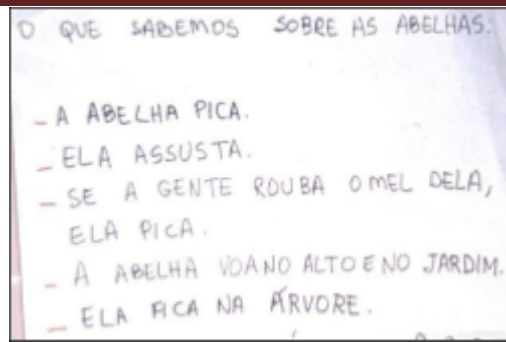 O QUE SABEMOS SOBRE AS ABELHAS.
- A ABELHA PICA.
- ELA ASSUSTA.
- SE A GENTE ROUBA O MEL DELA,
ELA PICA.
- A ABELHA VOA NO ALTO E NO JARDIM.
- ELA FICA NA ÁRVORE.